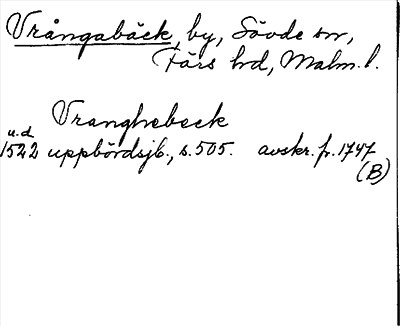 Vrångabäck, by, Sövde sn,
Färs hd, Malm. l.
Vranghebeck
u.d
1522 uppbördsjb., s. 505. avskr. fr. 1747
(B)